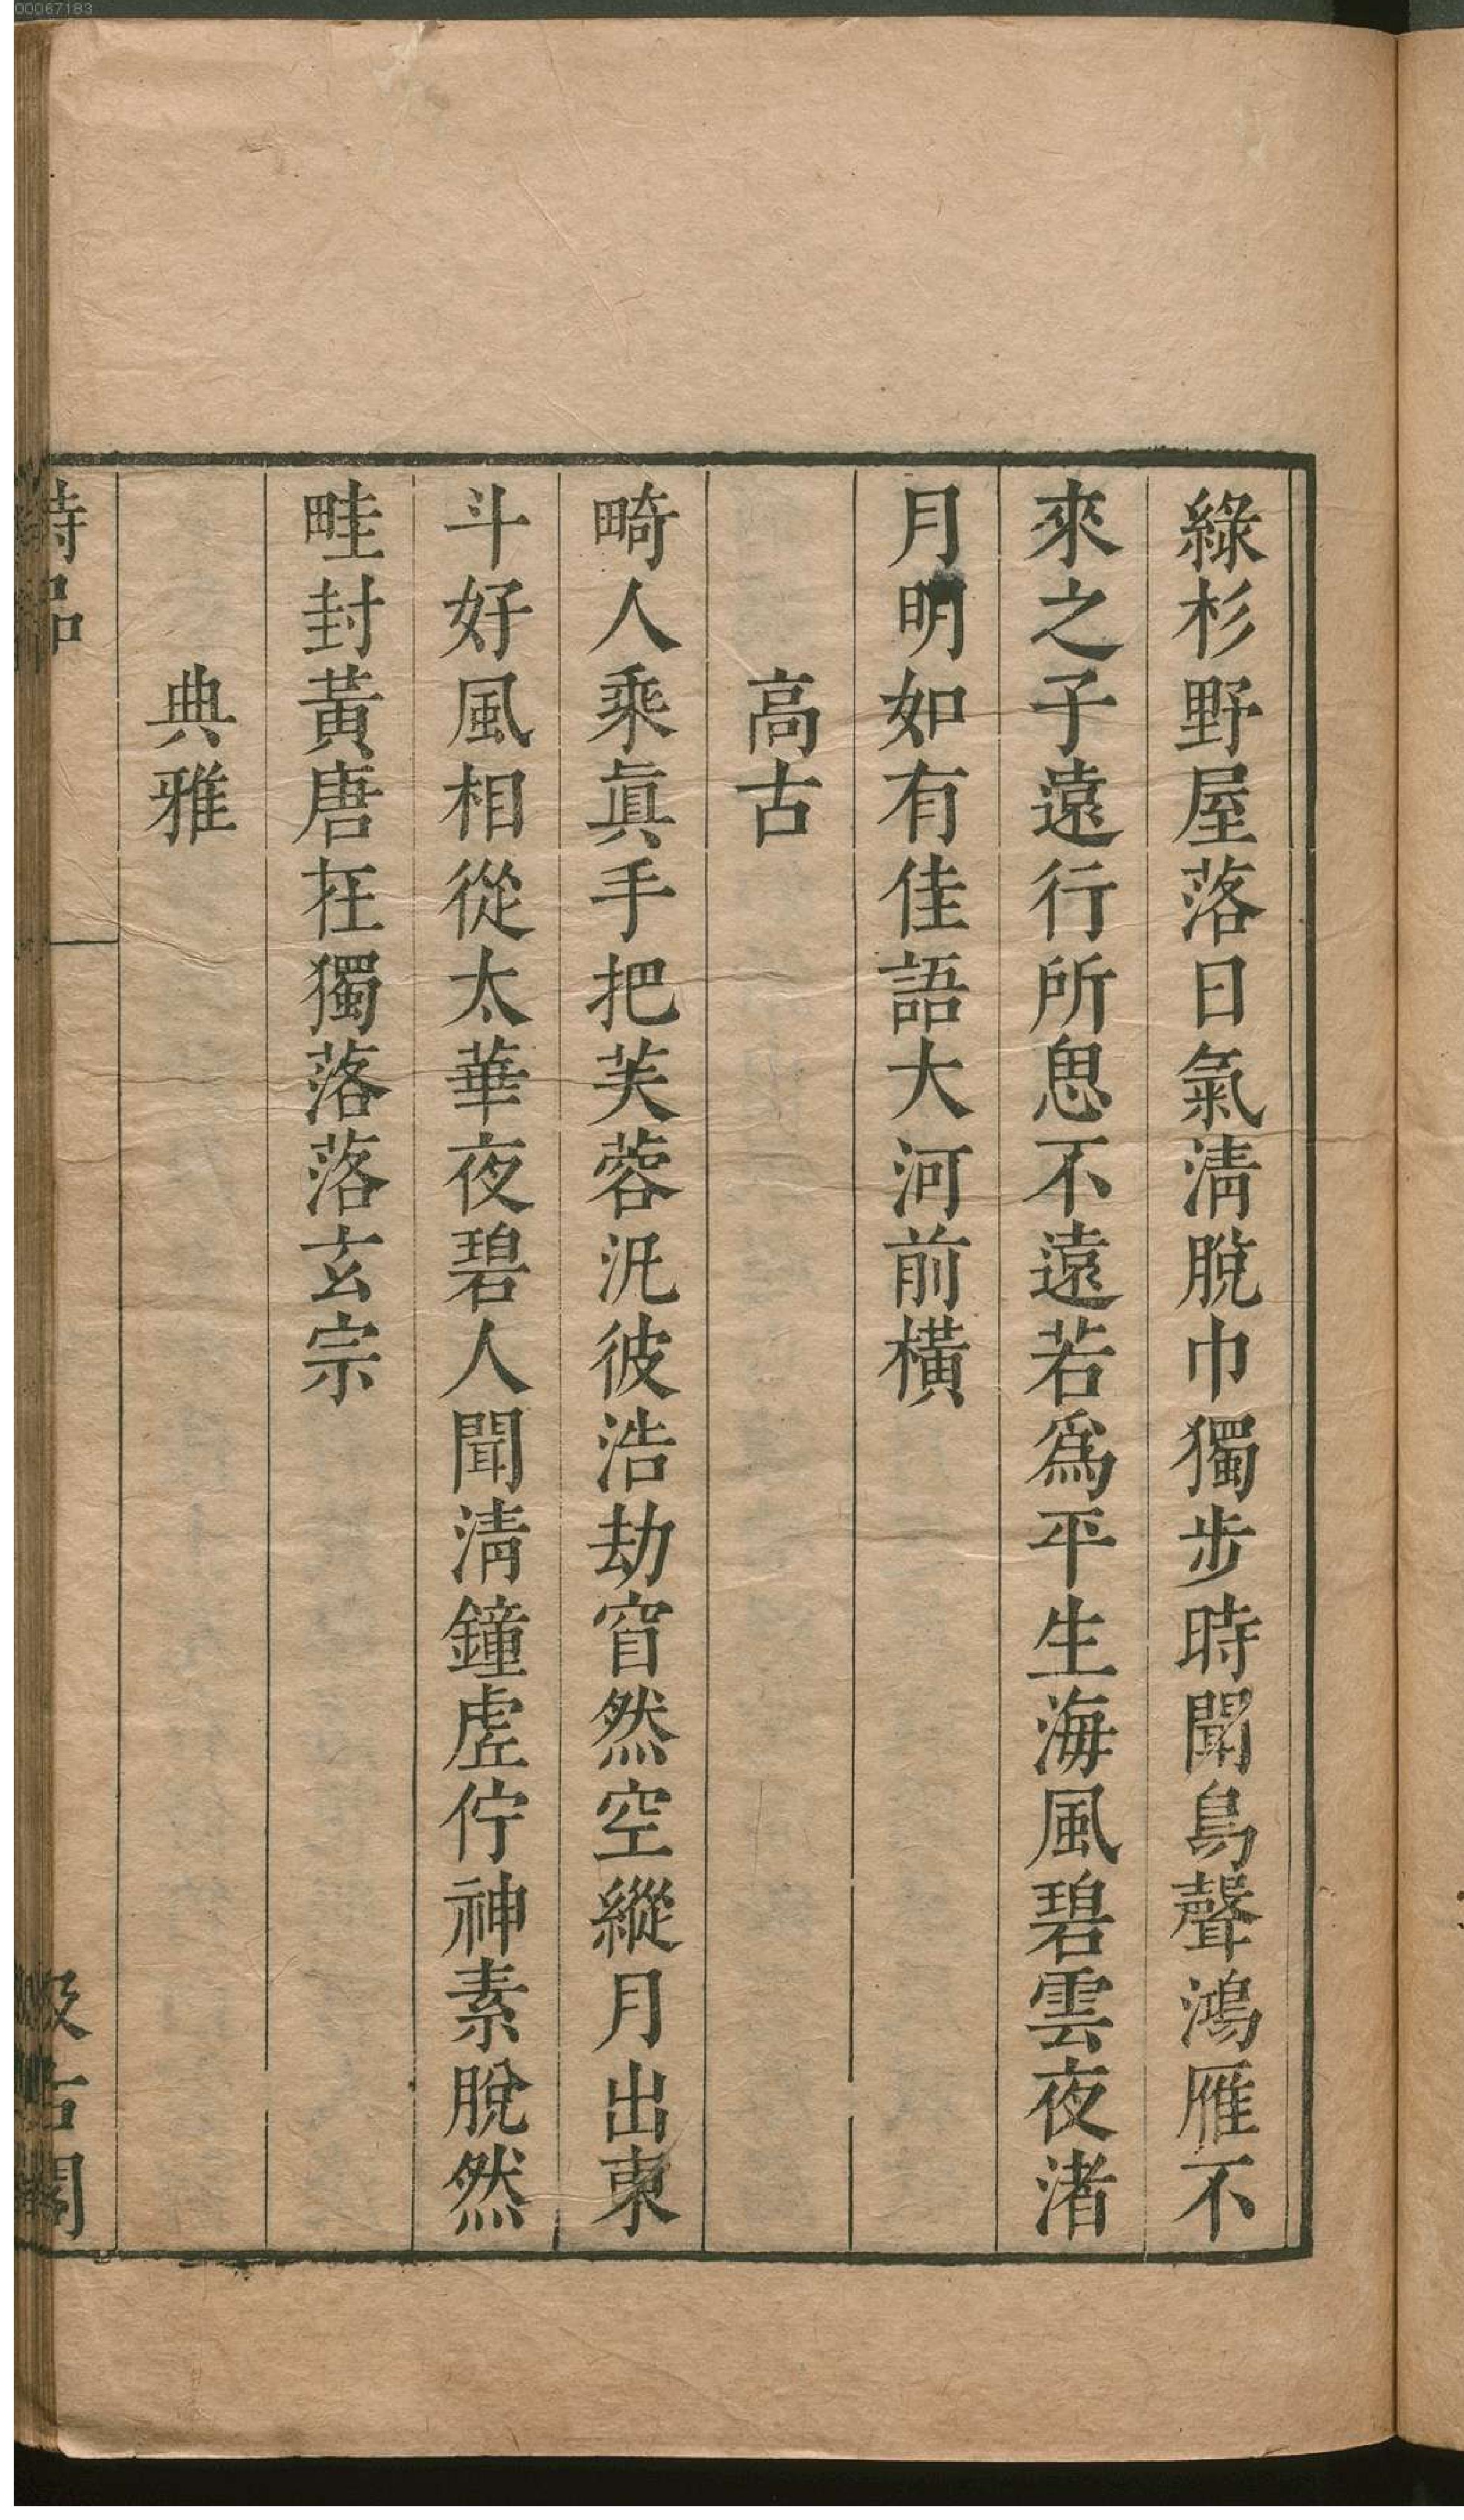 綠杉野屋落日氣淸脫巾獨步時聞鳥聲鴻雁不
來之子遠行所思不遠若爲平生海風碧雲夜渚
月明如有佳語大河前橫
高古
畸人乘眞手把芙蓉汎彼浩劫窅然空縱月出東
斗好風相從太華夜碧人聞淸鐘虛佇神素脫然
畦封黃唐在獨落落玄宗
典雅
詩品
汲古閣
00067183